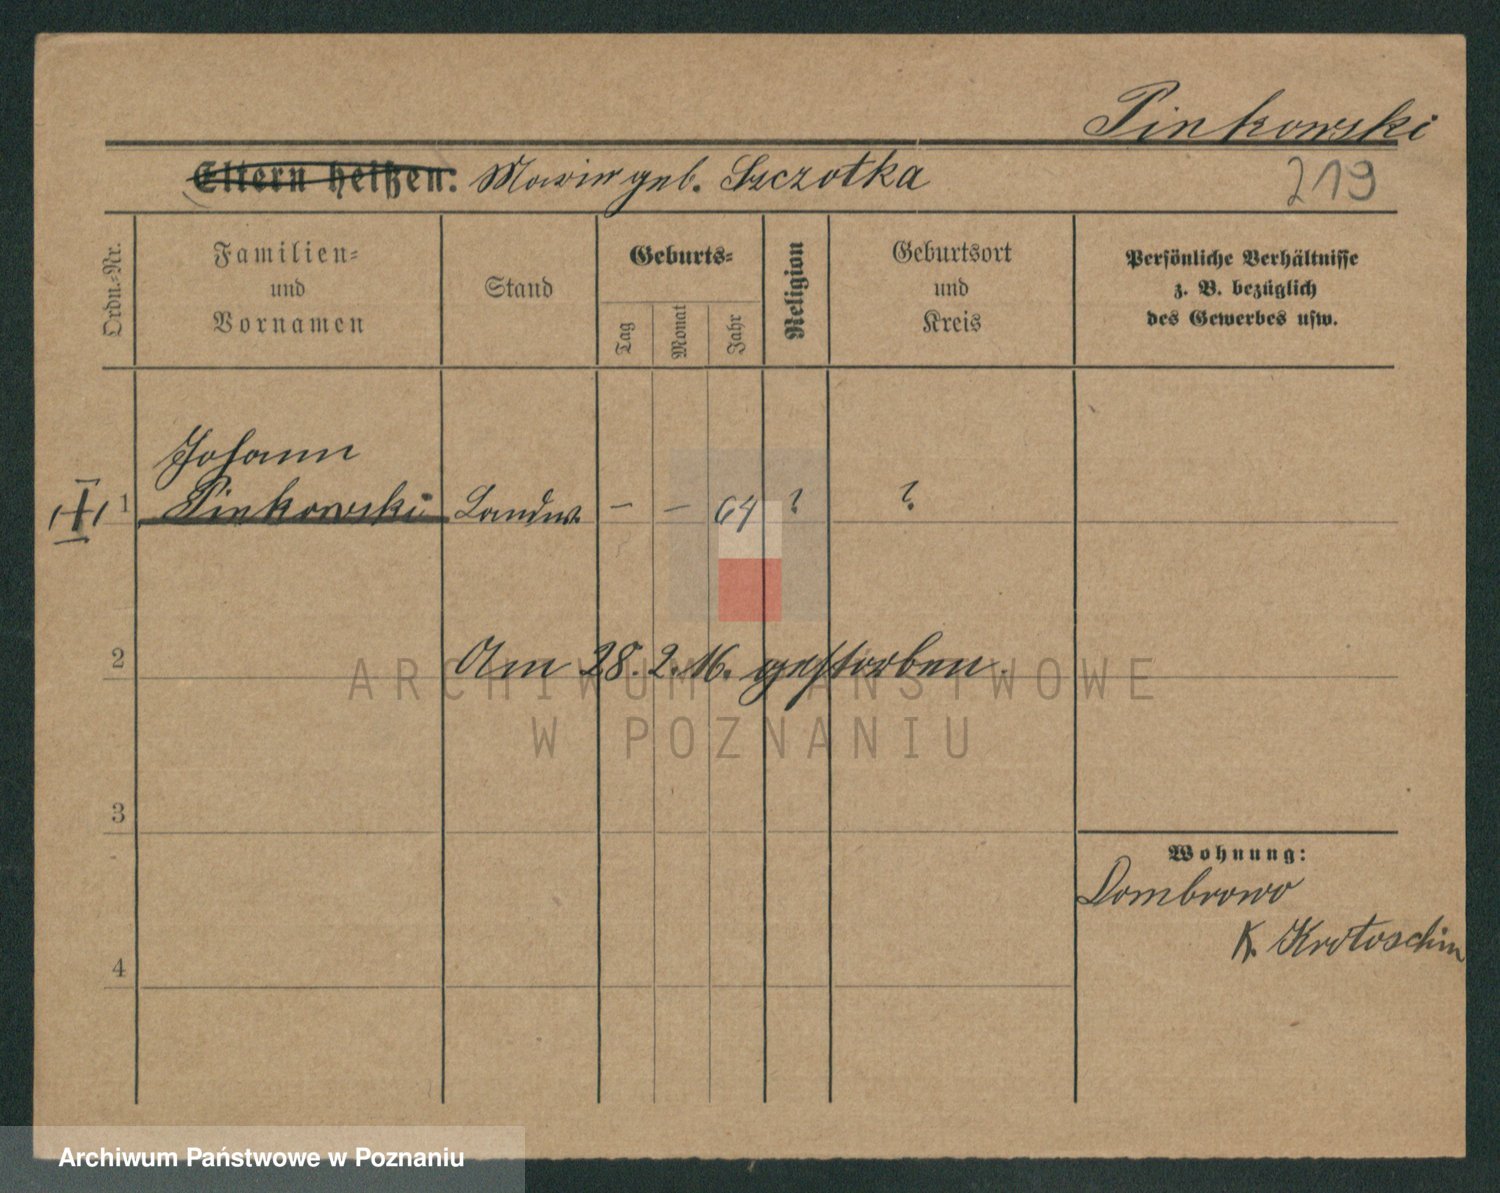 Pinkowski
Eltern heißen: Marie geb. Szczotka
219
Ordn.-Nr.
Familien-
und
Vornamen
Stand
Geburts-
Tag
Monat
Jahr
Religion
Geburtsort
und
Kreis
Persönliche Verhältnisse
z. B. bezüglich
des Gewerbes usw.
Johann
1 Pinkowski Landw. – – 64 ? ?
2 Am 28. 2. 16. gestorben.
ARCHIWUM PAŃSTWOWE
W POZNANIU
3
Wohnung:
Dombrowo
K. Krotoschin
4
Archiwum Państwowe w Poznaniu